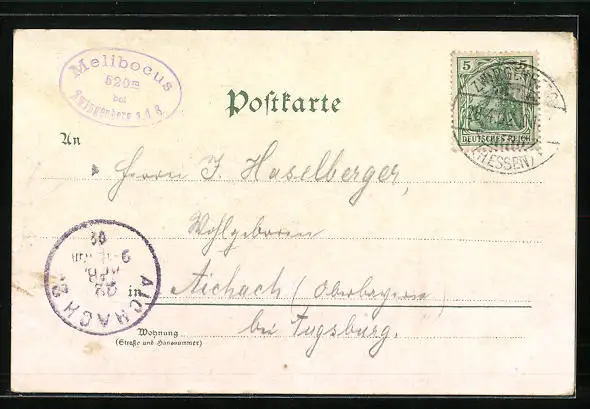 Melibocus
520m
bei
Zwingenberg a.d.B.
Postkarte
5 5
DEUTSCHES REICH
ZWINGENBERG
(HESSEN)
An
Herrn J. Haselberger,
Wohlgeboren
in Aichach (Oberbayern)
bei Augsburg.
Wohnung
(Straße und Hausnummer)
AICHACH 2
22
APR.
9
02